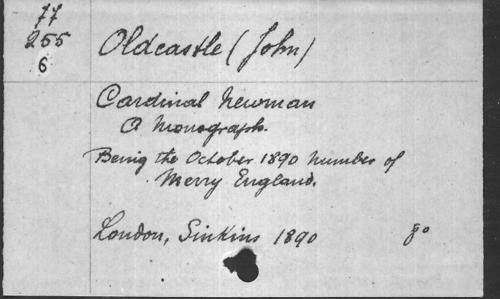 77
255
6
Oldcastle (John)
Cardinal Newman
A Monograph.
Being the October 1890 number of
Merry England.
London, Sinkins 1890 8o